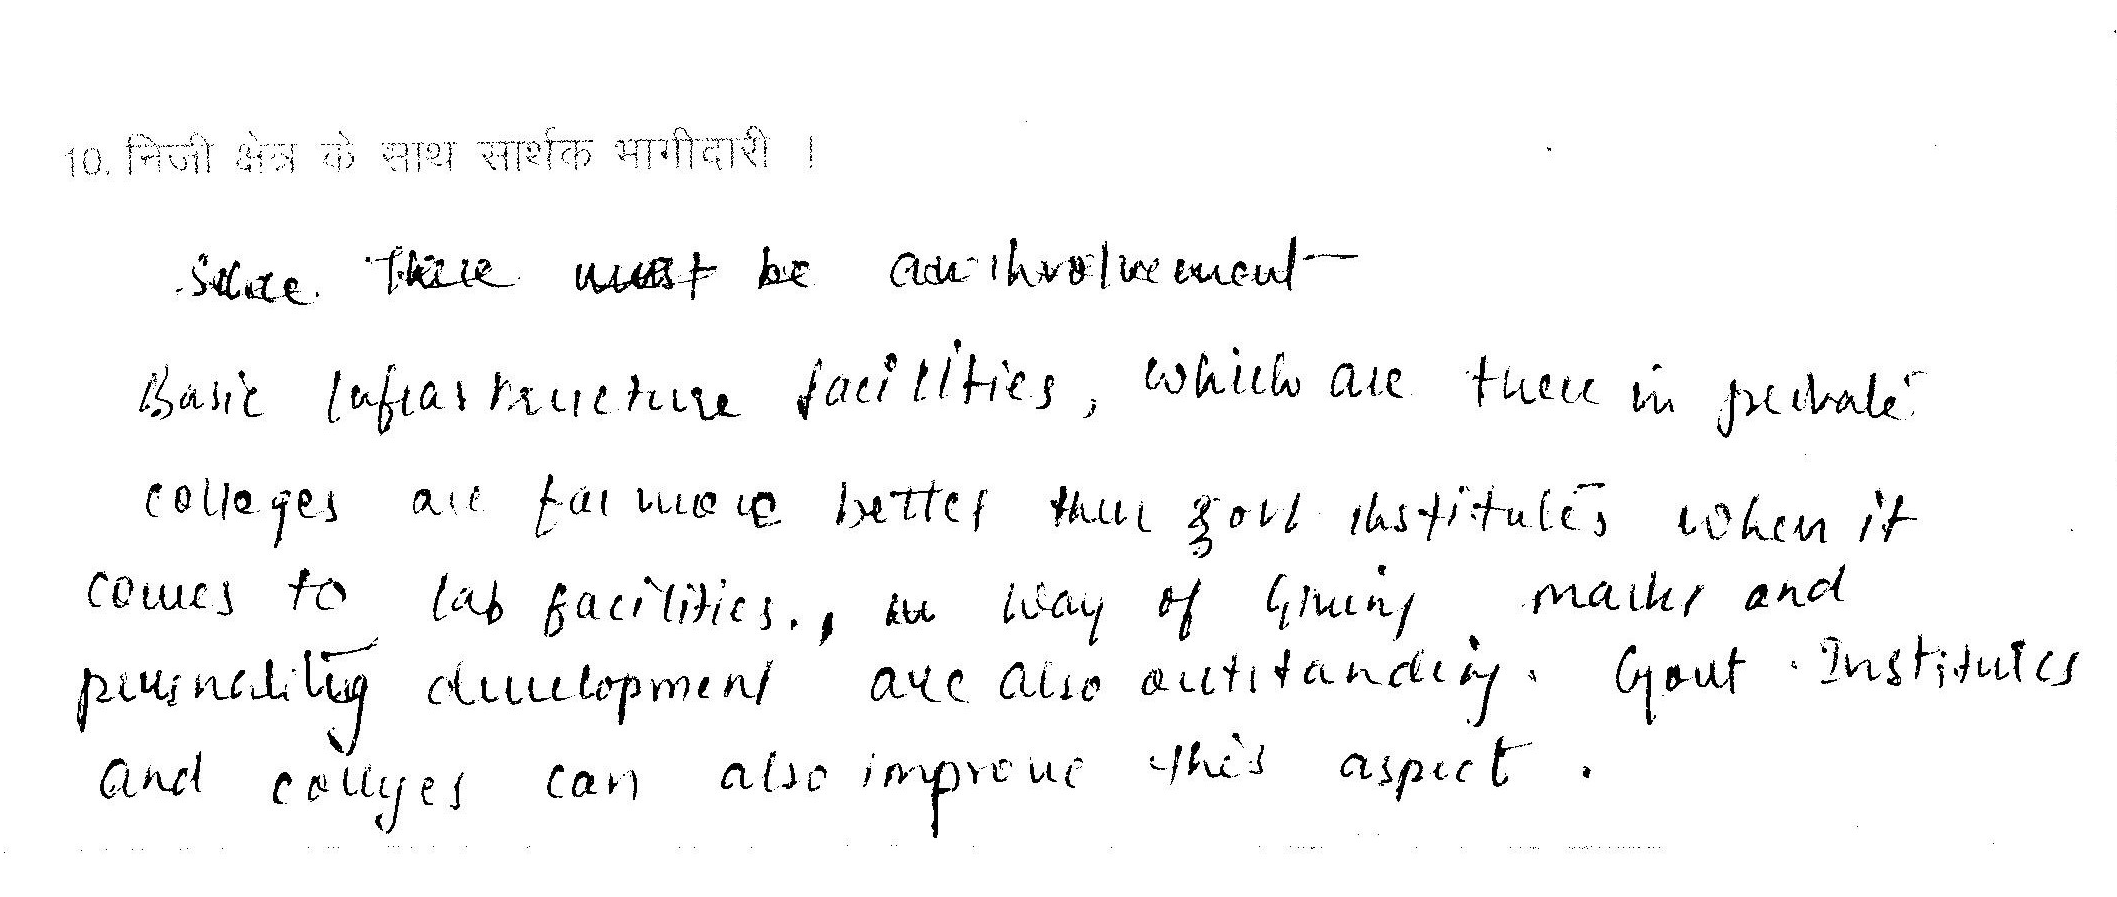 10. निजी क्षेत्र के साथ सार्थक भागीदारी ।
There must be an involvement
Basic Infrastructure facilities, which are there in private
colleges are far more better then govt institutes when it
comes to lab facilities., in way of Giving marks and
personality development are also outstanding. Govt. Institutes
and colleges can also improve this aspect.